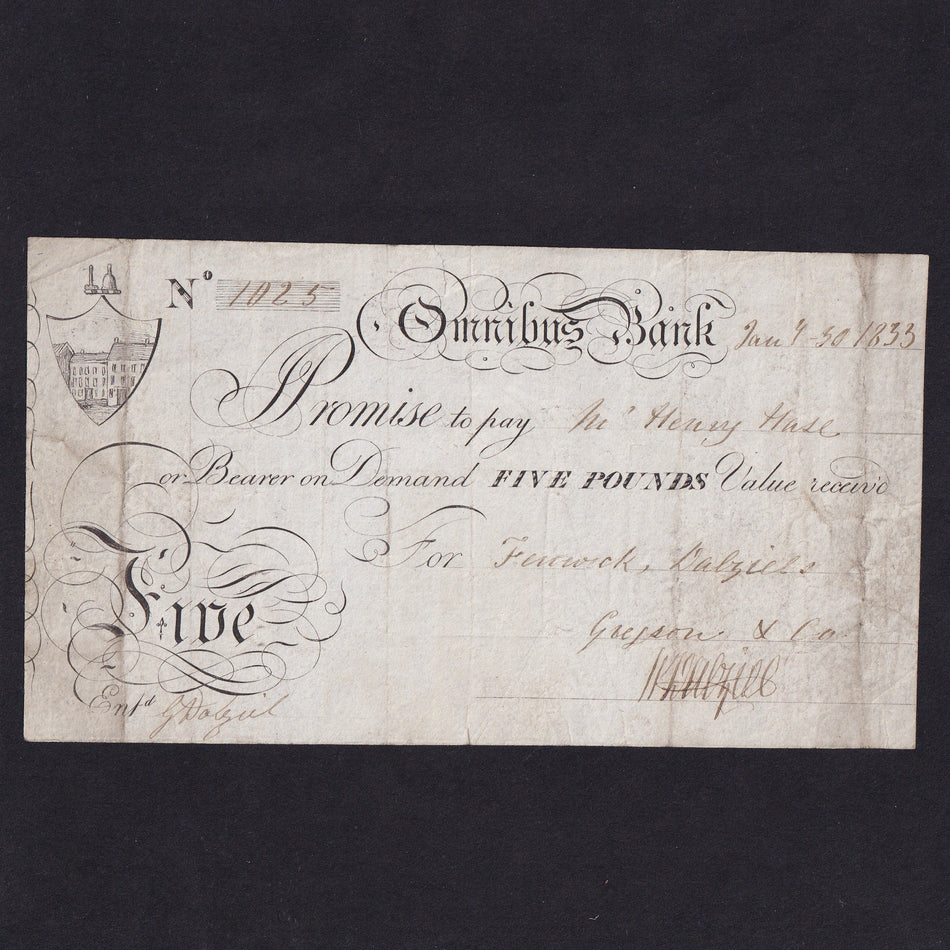 Nº 1025
Omnibus Bank Jany 30 1833
I Promise to pay Mr Henry Hase
or Bearer on Demand FIVE POUNDS Value receiv'd
For Fenwick, Dalziels
Five
Gregson & Co
Entd G Dalziel